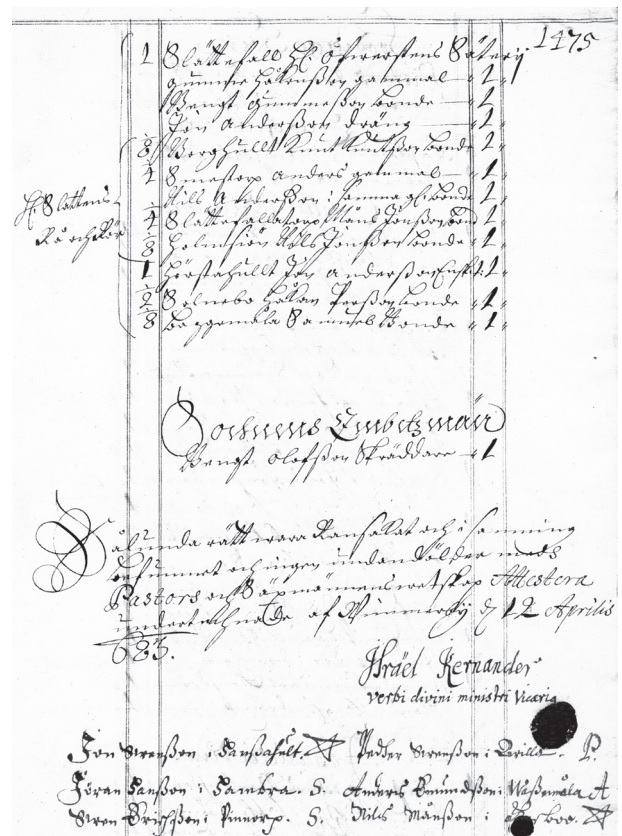 1475
1 Slättefall H. Öfwerstens Säterij
Gumme Håkensson gammal " 1 "
Bengt Gummesson Bonde " 1 "
Jon Andersson dräng " 1 "
1/8 Berghullt Knut Knutsson Bonde " 1 "
1/4 Smestorp Anders gammal " 1 "
Nills Andersson i samma gl. Bonde " 1 "
1/4 Slättefallatorp Måns Jonsson Bond " 1 "
1/8 Holmsiön Nills Jonsson Bonde " 1 "
H. Slättens
Rå och Rör
1 Hörstahullt Jon Andersson 1 "
1/2 Solnebo Håkan Persson Bonde " 1 "
1/8 Baggemåla Samuel Bonde " 1 "
Sochnens Embetzmän
Bengt Olofsson Skräddare 1
Sålunda rätt wara Ransakat och i sanning
befunnet och ingen undandölder meds
Pastors och Säxmännens wetskap Attestera
undertecknade af Wimmerby d 12 Aprilis
1683.
Israel Kernander
verbi divini ministri Vicarig
Jon Swensson i Hanssahult. Pedher Swensson i Qvilla. P.
Jöran Hansson i Hambra. S. Anders Emundsson i Wassemåla A
Swen Erichsson i Pinnorp. S. Nils Månsson i